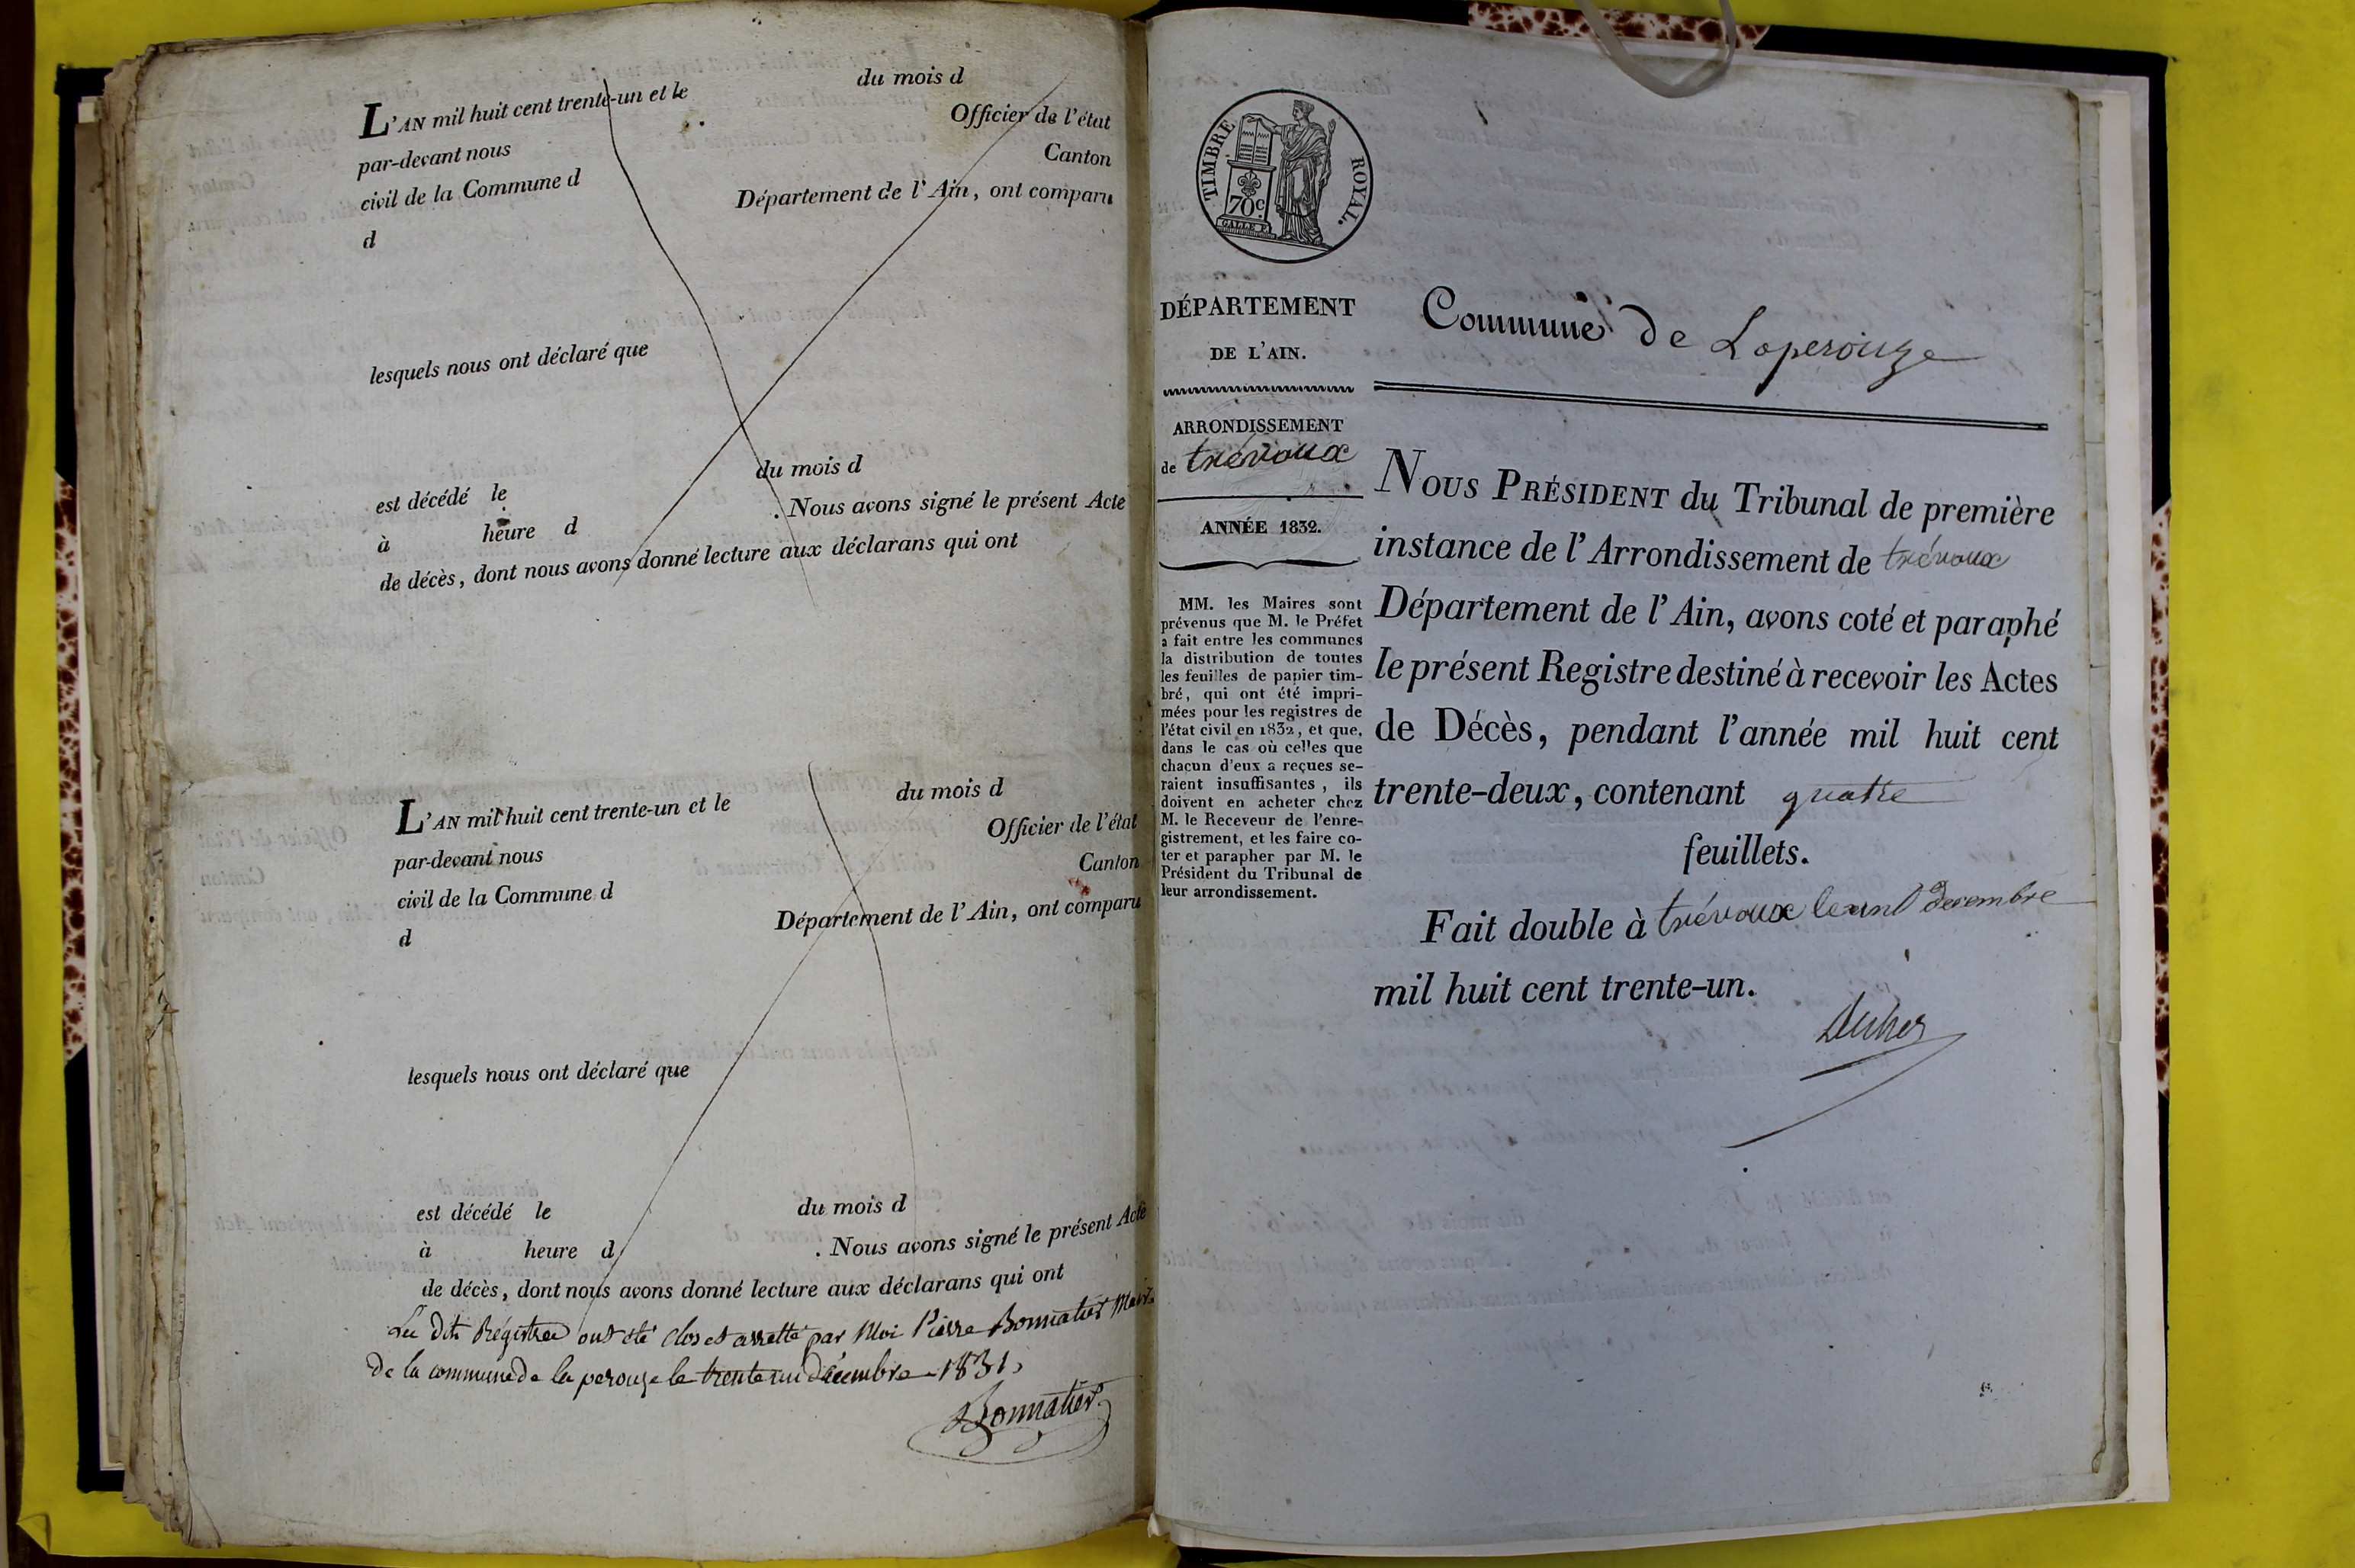 L'AN mil huit cent trente-un et le du mois d
par-devant nous Officier de l'état
civil de la Commune d Canton
d Département de l'Ain, ont comparu
lesquels nous ont déclaré que
est décédé le du mois d
à heure d . Nous avons signé le présent Acte
de décès, dont nous avons donné lecture aux déclarans qui ont
L'AN mil huit cent trente-un et le du mois d
par-devant nous Officier de l'état
civil de la Commune d Canton
d Département de l'Ain, ont comparu
lesquels nous ont déclaré que
est décédé le du mois d
à heure d . Nous avons signé le présent Acte
de décès, dont nous avons donné lecture aux déclarans qui ont
ont été clos et arretté par Moi Pierre Bonnatier Maire
de la commune de la perouze le trente un Décembre 1831,
Bonnatier
TIMBRE ROYAL.
70c.
DÉPARTEMENT
DE L'AIN.
ARRONDISSEMENT
de trévoux
ANNÉE 1832.
MM. les Maires sont
prévenus que M. le Préfet
a fait entre les communes
la distribution de toutes
les feuilles de papier tim-
bré, qui ont été impri-
mées pour les registres de
l'état civil en 1832, et que,
dans le cas où celles que
chacun d'eux a reçues se-
raient insuffisantes, ils
doivent en acheter chez
M. le Receveur de l'enre-
gistrement, et les faire co-
ter et parapher par M. le
Président du Tribunal de
leur arrondissement.
Commune de Laperouze
NOUS PRÉSIDENT du Tribunal de première
instance de l'Arrondissement de trévoux
Département de l'Ain, avons coté et paraphé
le présent Registre destiné à recevoir les Actes
de Décès, pendant l'année mil huit cent
trente-deux, contenant quatre
feuillets.
Fait double à trévoux decembre
mil huit cent trente-un.